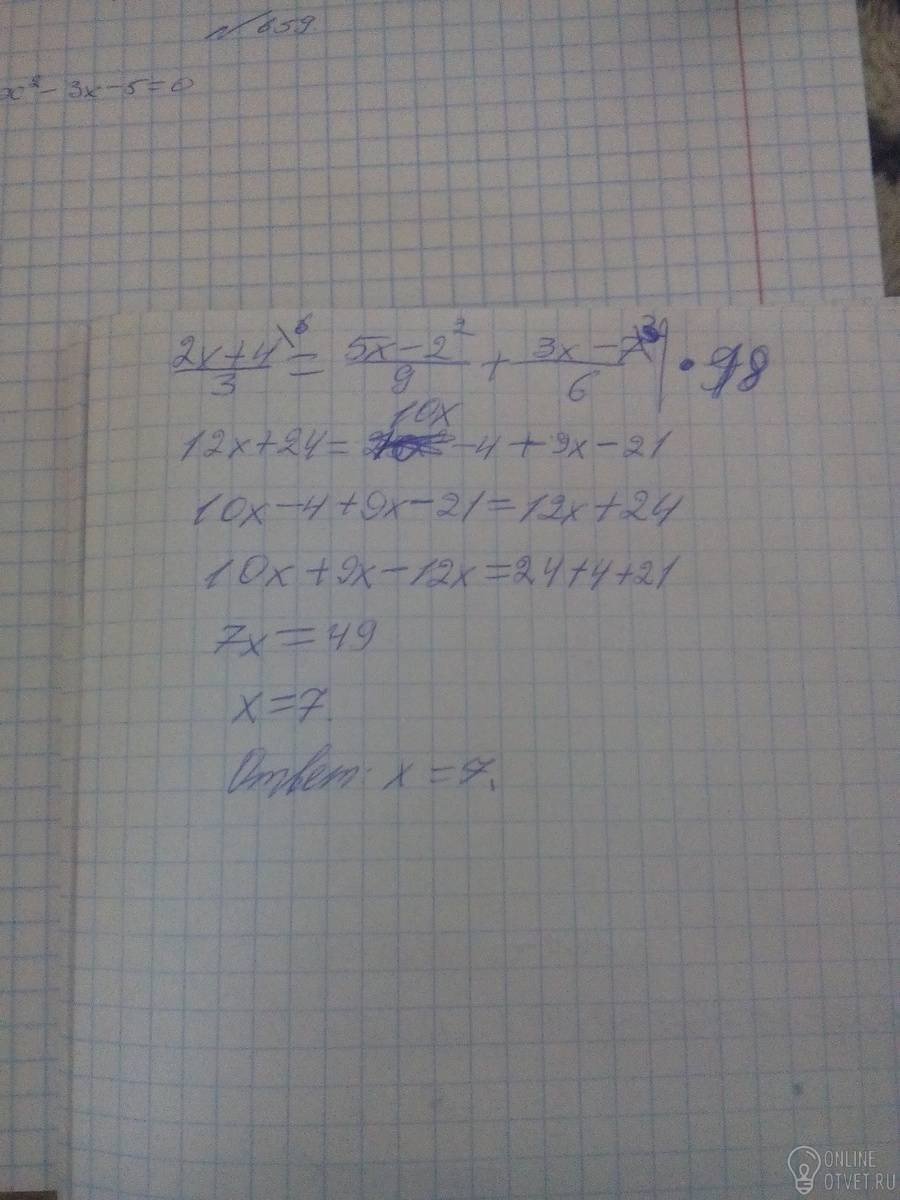 № 659
x² - 3x - 5 = 0
(2x+4)/3 \⁶ = (5x-2)/9 ² + (3x-7)/6 \³ | • 18
12x+24= 10x -4 + 9x - 21
10x -4 + 9x - 21 = 12x + 24
10x + 9x - 12x = 24 + 4 + 21
7x = 49
x = 7
Ответ: x = 7.
ONLINE
OTVET.RU